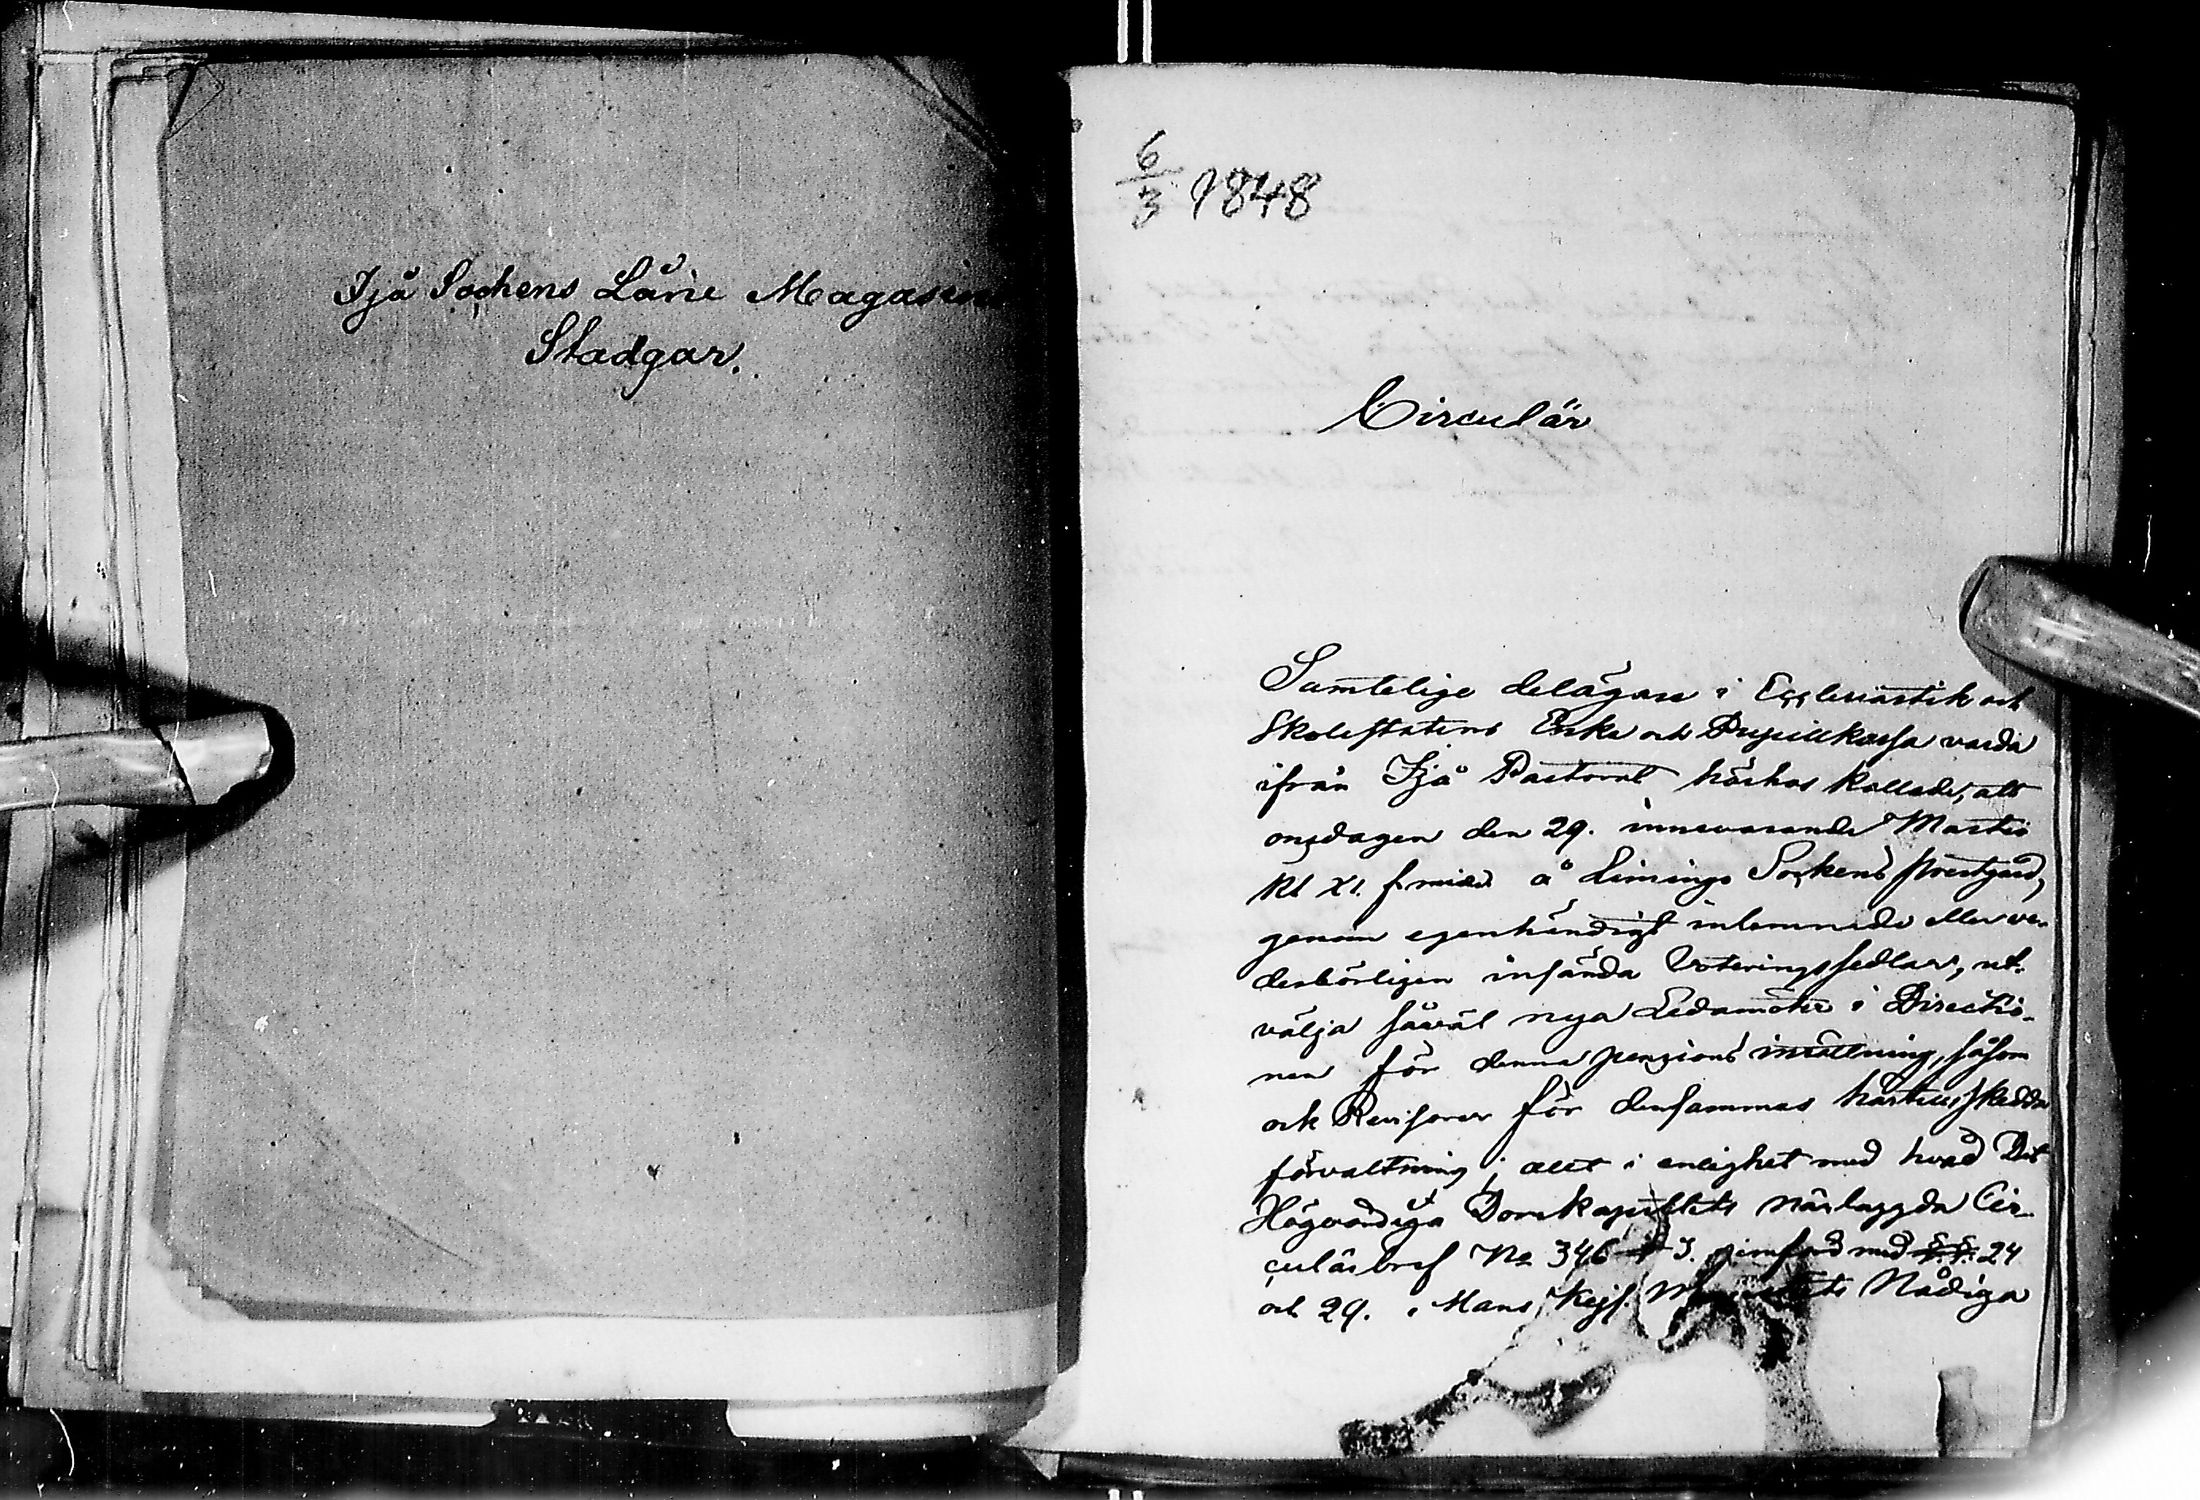 Ijå Sockens Låne Magasins
Stadgar.
6/3 1848
Circulär
Samtelige delägare i Ecclesiastik och
Skolestatens Enke och Pupillkassa varda
ifrån Ijå Pastorat härhos kallade, att
onsdagen den 29. innevarande Martii
Kl XI. f.midd. å Limingo Sockens prestgård,
genom egenhändigt inlemnade eller ve-
derbörligen insända Voteringssedlar, ut-
välja såväl nya Ledamöter i Directio-
nen för denna pensions inrättning, såsom
ock Revisorer för densammas härtills skedda
förvaltning; allt i enlighet med hvad Det
Högvördiga Domkapitlets närlaggda Cir-
culärbref No 346 3. jemförd med §.§. 24
och 29. i Hans Kejs. Majestets Nådiga